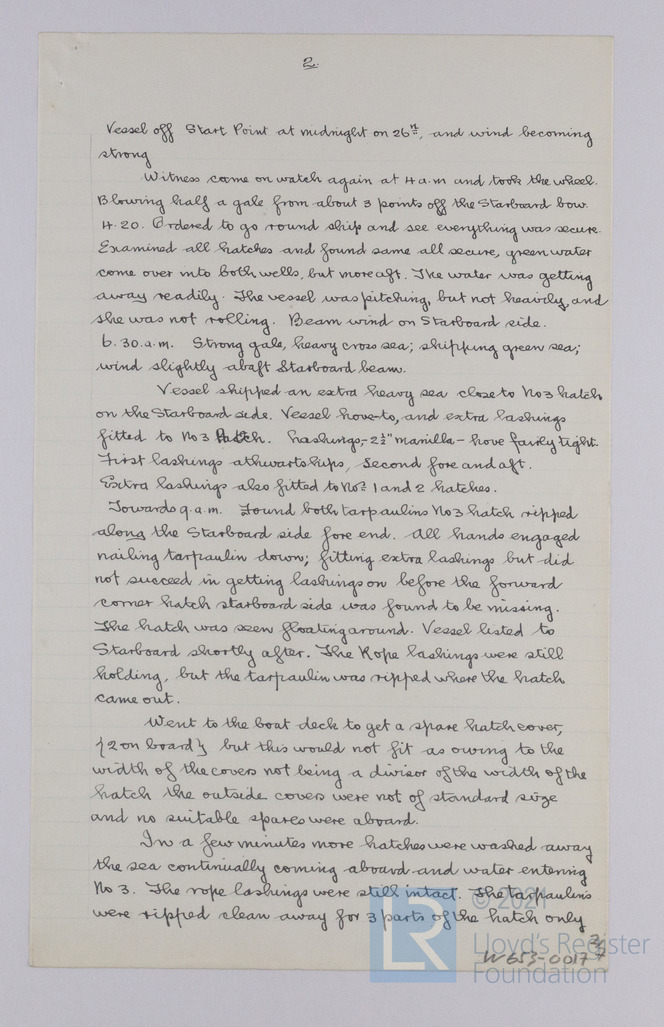 2.
Vessel off Start Point at midnight on 26th, and wind becoming
strong
Witness came on watch again at 4 a.m and took the wheel.
Blowing half a gale from about 3 points off the Starboard bow.
4.20. Ordered to go round ship and see everything was secure.
Examined all hatches and found same all secure, green water
come over into both wells, but more aft. The water was getting
away readily. The vessel was pitching, but not heavily, and
she was not rolling. Beam wind on Starboard side.
6.30.a.m. Strong gale, heavy cross sea; shipping green sea;
wind slightly abaft Starboard beam.
Vessel shipped an extra heavy sea close to No 3 hatch
on the Starboard side. Vessel hove-to, and extra lashings
fitted to No 3 hatch. Lashings,- 2½" manilla - hove fairly tight.
First lashings athwartships, second fore and aft.
Extra lashings also fitted to Nos 1 and 2 hatches.
Towards 9.a.m. Found both tarpaulins No 3 hatch ripped
along the Starboard side fore end. All hands engaged
nailing tarpaulin down; fitting extra lashings but did
not succeed in getting lashings on before the forward
corner hatch starboard side was found to be missing.
The hatch was seen floating around. Vessel listed to
Starboard shortly after. The Rope lashings were still
holding, but the tarpaulin was ripped where the hatch
came out.
Went to the boat deck to get a spare hatch cover,
{2 on board} but this would not fit as owing to the
width of the covers not being a divisor of the width of the
hatch the outside covers were not of standard size
and no suitable spares were aboard.
In a few minutes more hatches were washed away
the sea continually coming aboard and water entering
No 3. The rope lashings were still intact. The tarpaulins
were ripped clean away for 3 parts of the hatch only
W653-0017
© 2021
LR
Lloyd's Register
Foundation